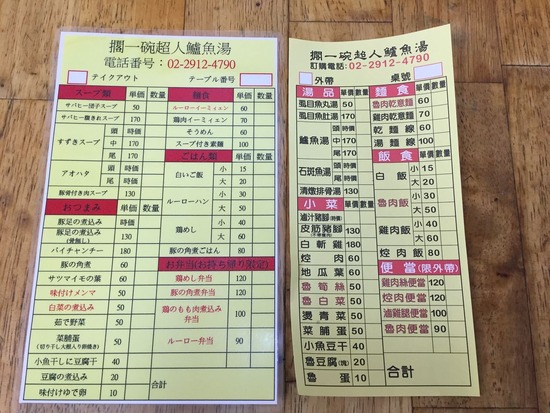 擱一碗超人鱸魚湯
電話番号：02-2912-4790
テイクアウト テーブル番号
スープ類 単価 数量
サバヒー団子スープ 50
サバヒー腹きれスープ 170
すずきスープ 頭 時価
中 170
尾 170
アオハタ 頭 時価
尾 時価
豚骨付き肉スープ 130
おつまみ 単価 数量
豚足の煮込み 時価
豚足の煮込み(骨無し) 130
バイチャンチー 180
豚の角煮 60
サツマイモの葉 60
味付けメンマ 50
白菜の煮込み 50
茹で野菜 50
菜脯蛋
(切り干し大根入り卵焼き) 50
小魚干しに豆腐干 40
豆腐の煮込み 20
味付けゆで卵 10
麺食 単価 数量
ルーローイーミィェン 60
鶏肉イーミィェン 70
そうめん 60
スープ付き素麺 100
ごはん類 単価 数量
白いご飯 小 15
大 20
ルーローハン 小 30
大 50
鶏めし 小 40
大 60
豚の角煮ごはん 80
お弁当(お持ち帰り限定)
鶏めし弁当 120
豚の角煮弁当 120
鶏のもも肉煮込み
弁当 100
ルーロー弁当 90
合計
擱一碗超人鱸魚湯
訂購電話:02-2912-4790
外帶 桌號
湯品 單價 數量
虱目魚丸湯 50
虱目魚肚湯 170
鱸魚湯 頭 時價
中 170
尾 170
石斑魚湯 頭 時價
尾 時價
清燉排骨湯 130
小菜 單價 數量
滷汁豬腳 時價
皮筋豬腳 130
白斬雞 180
焢肉 60
地瓜葉 60
魯筍絲 50
魯白菜 50
燙青菜 50
菜脯蛋 50
小魚豆干 40
魯豆腐(塊) 20
魯蛋 10
麵食 單價 數量
魯肉乾意麵 60
雞肉乾意麵 70
乾麵線 60
湯麵線 100
飯食 單價 數量
白飯 小 15
大 20
魯肉飯 小 30
大 50
雞肉飯 小 40
大 60
焢肉飯 80
便當(限外帶)
雞肉絲便當 120
焢肉便當 120
滷雞腿便當 100
魯肉便當 90
合計